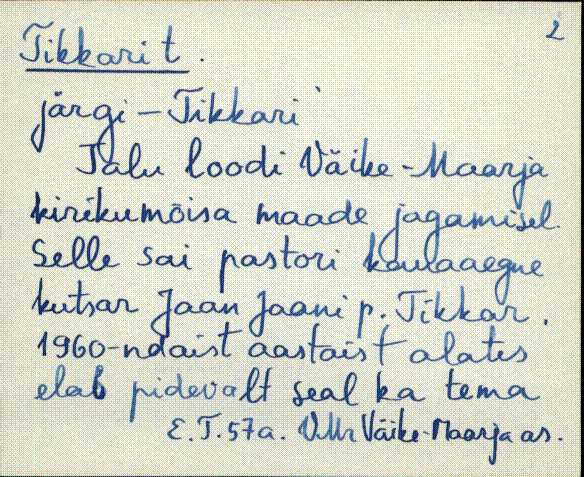 2
Tikkari t.
järgi – Tikkari
Talu loodi Väike-Maarja
kirikumõisa maade jagamisel.
Selle sai pastori kauaaegne
kutsar Jaan Jaani p. Tikkar.
1960-ndaist aastaist alates
elab pidevalt seal ka tema
E.T. 57a. VMr Väike-Maarja as.